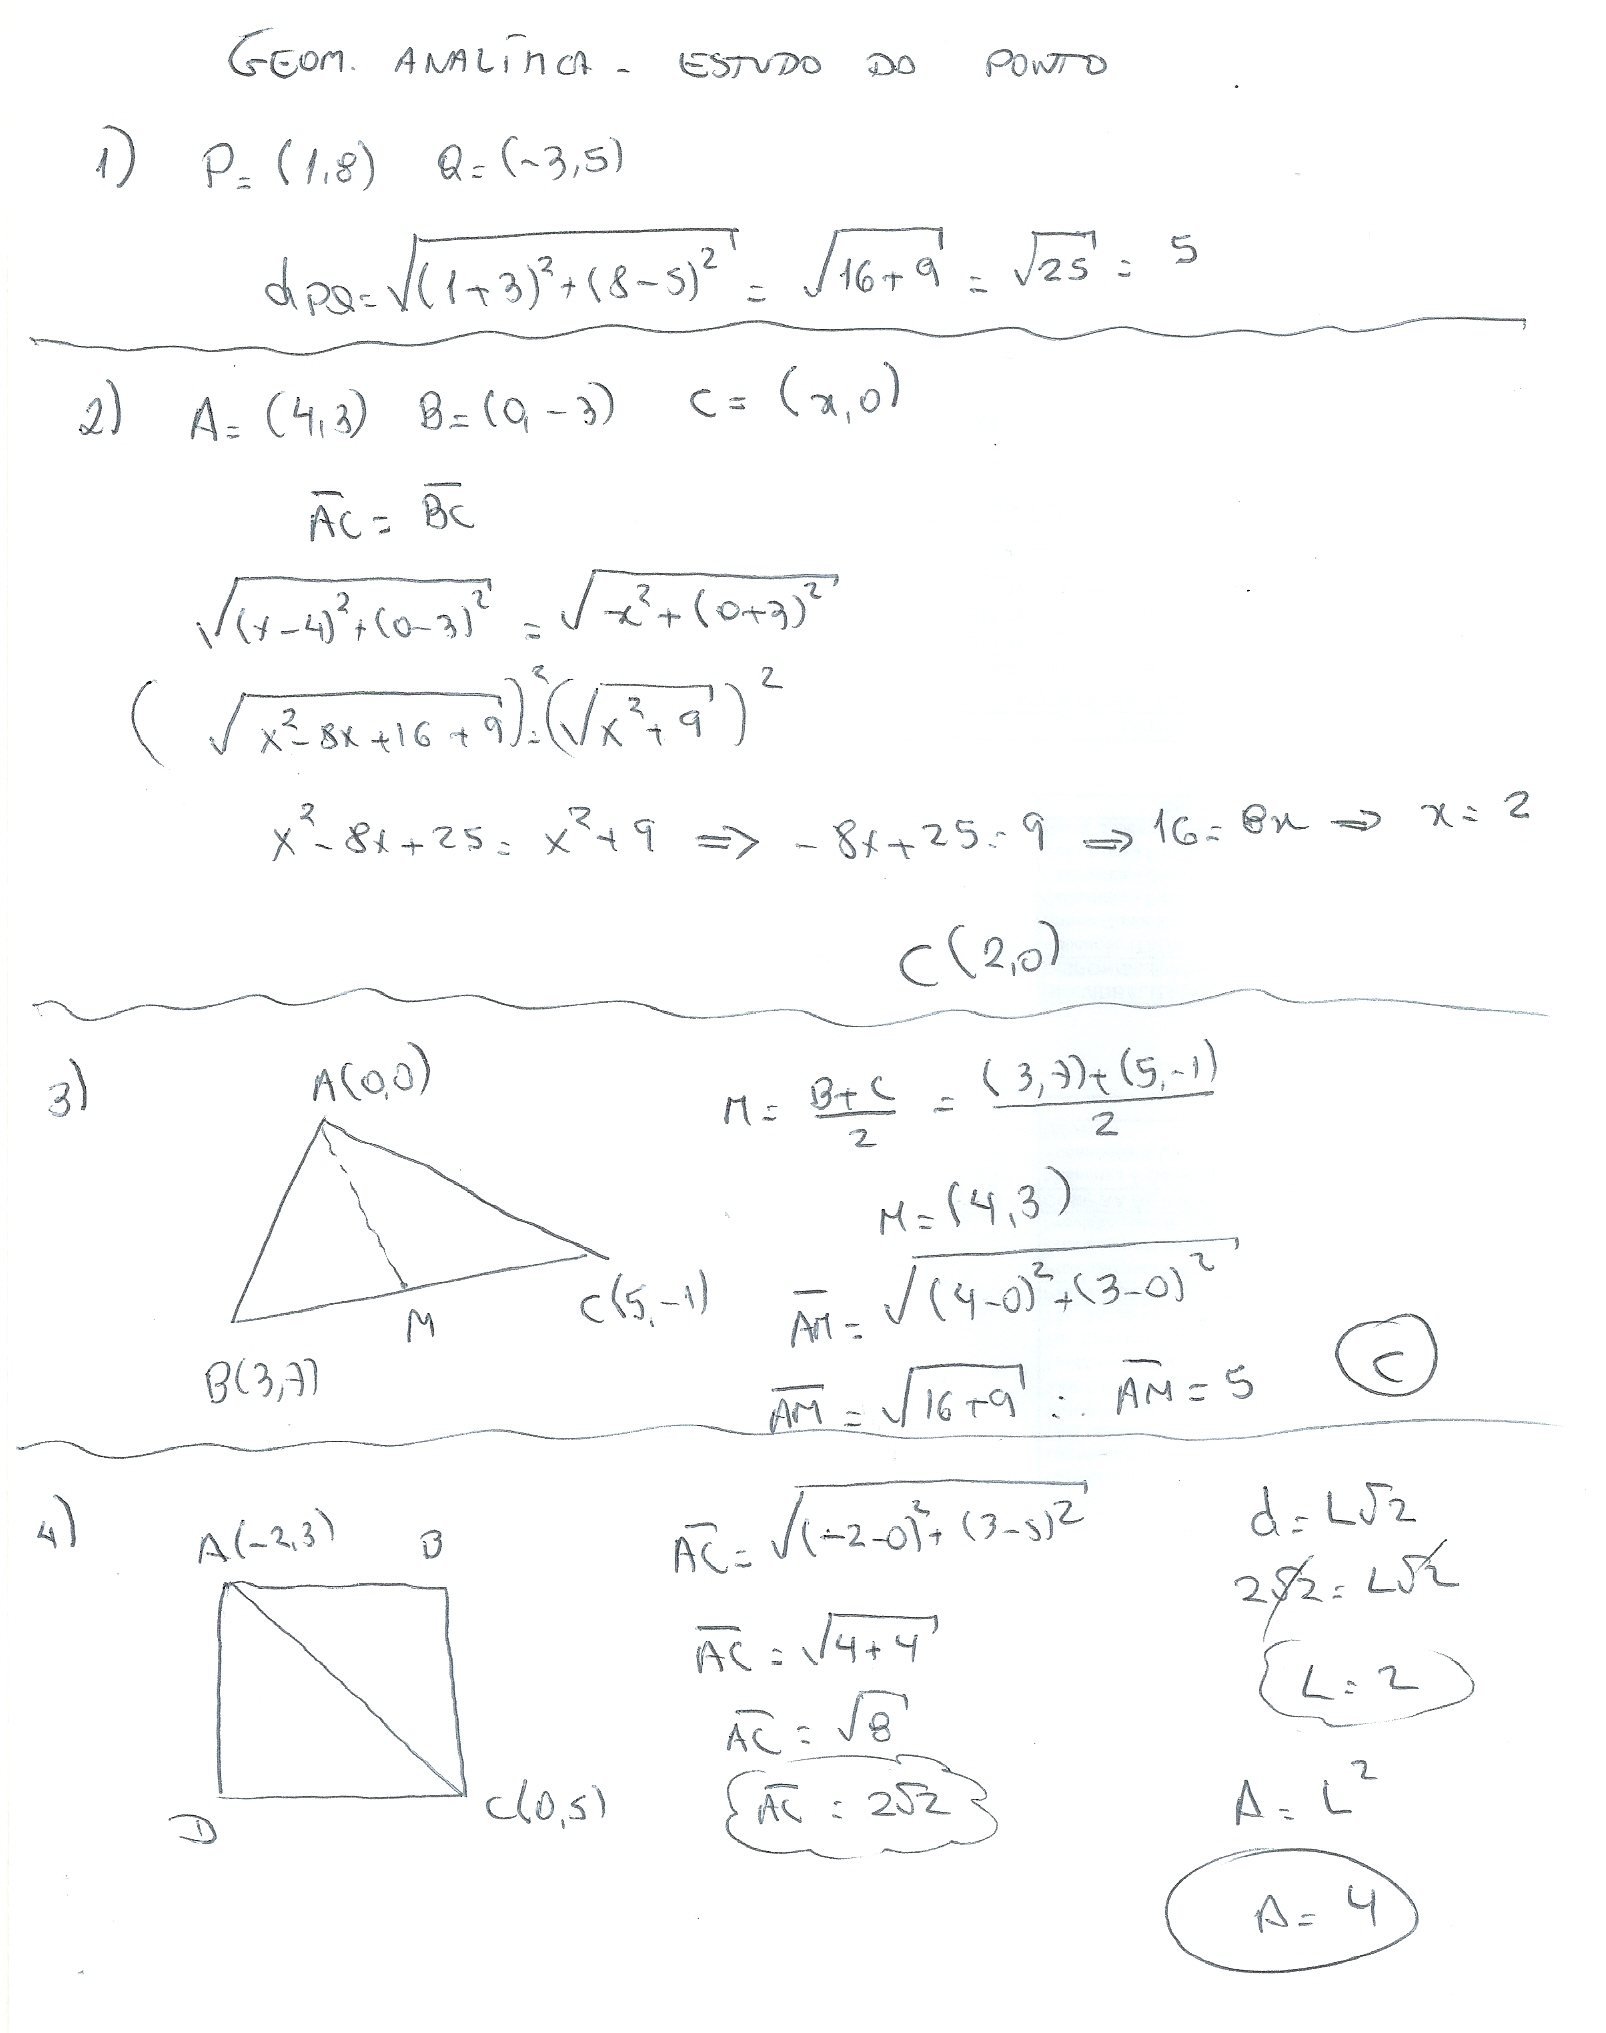 GEOM. ANALÍTICA - ESTUDO DO PONTO
1) P = (1,8) Q = (-3,5)
dPQ = √((1+3)² + (8-5)²) = √(16+9) = √25 = 5
2) A = (4,3) B = (0,-3) C = (x,0)
A̅C̅ = B̅C̅
√((x-4)² + (0-3)²) = √(x² + (0+3)²)
(√(x² - 8x + 16 + 9))² = (√(x² + 9))²
x² - 8x + 25 = x² + 9 ⇒ -8x + 25 = 9 ⇒ 16 = 8x ⇒ x = 2
C(2,0)
3) A(0,0)
B(3,7)
M
C(5,-1)
M = (B+C)/2 = ((3,7)+(5,-1))/2
M = (4,3)
A̅M̅ = √((4-0)² + (3-0)²)
A̅M̅ = √(16+9) ∴ A̅M̅ = 5
C
4) A(-2,3) B
D
C(0,5)
A̅C̅ = √((-2-0)² + (3-5)²)
A̅C̅ = √(4+4)
A̅C̅ = √8
A̅C̅ = 2√2
d = L√2
2√2 = L√2
L = 2
A = L²
A = 4